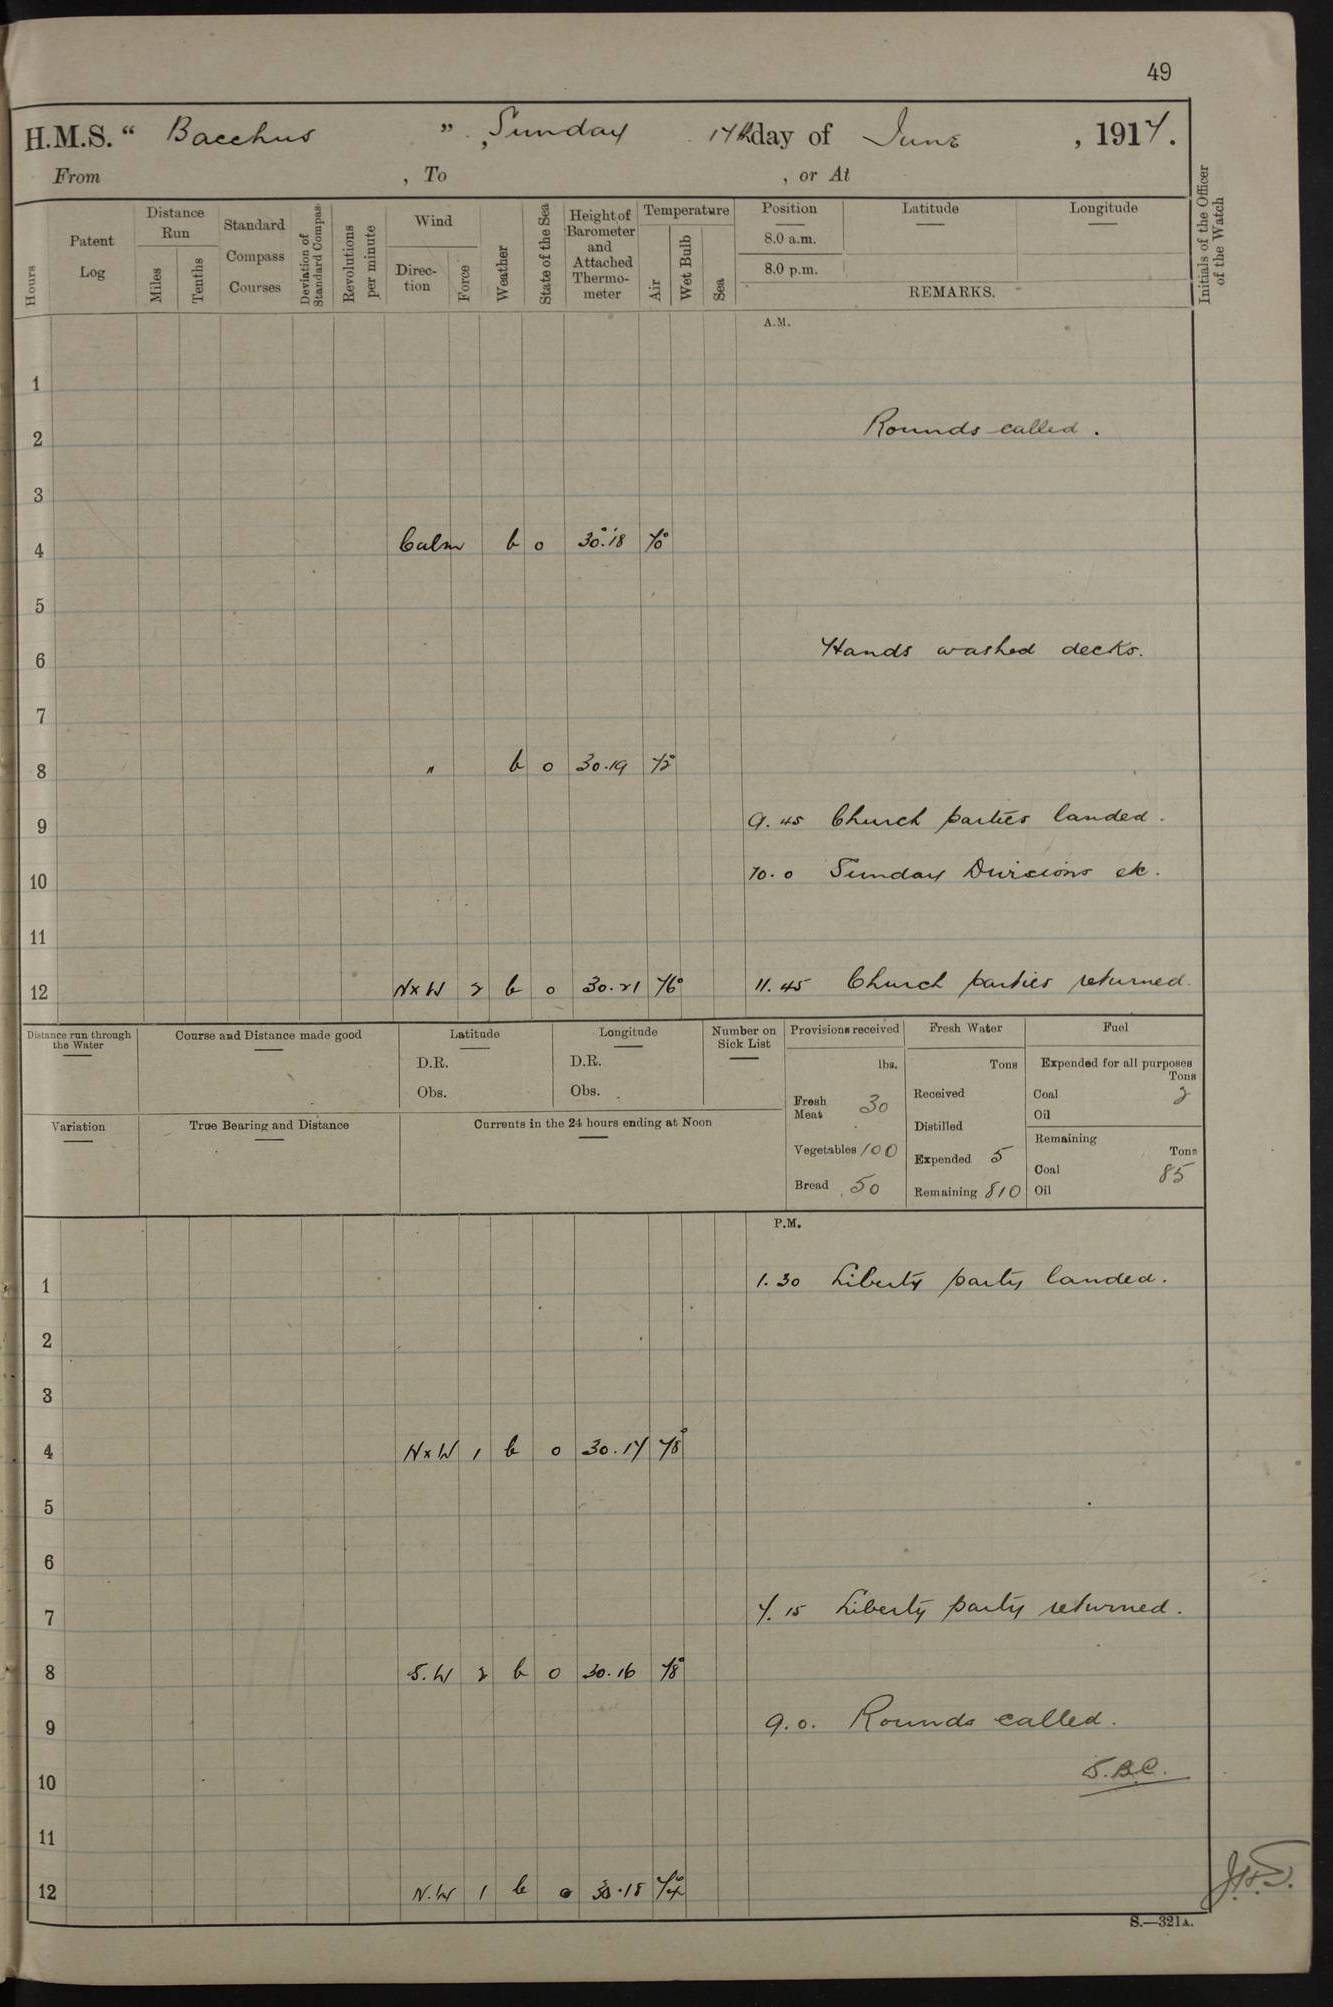 49
H.M.S. " Bacchus ", Sunday 17th day of June, 1917.
From , To , or At
Hours
Patent Log
Distance Run
Miles
Tenths
Standard Compass Courses
Deviation of Standard Compass
Revolutions per minute
Wind
Direction
Force
Weather
State of the Sea
Height of Barometer and Attached Thermometer
Temperature
Air
Wet Bulb
Sea
Position Latitude Longitude
8.0 a.m.
8.0 p.m.
REMARKS.
Initials of the Officer of the Watch
A.M.
1
2 Rounds called.
3
4 Calm b 0 30.18 70°
5
6 Hands washed decks.
7
8 " b 0 30.19 72°
9 9.45 Church parties landed.
10 10.0 Sunday Divisions etc.
11
12 NxW 2 b 0 30.21 76° 11.45 Church parties returned.
Distance run through the Water
Course and Distance made good
Latitude
D.R.
Obs.
Longitude
D.R.
Obs.
Number on Sick List
Variation
True Bearing and Distance
Currents in the 24 hours ending at Noon
Provisions received
lbs.
Fresh Meat 30
Vegetables 100
Bread 50
Fresh Water
Tons
Received
Distilled
Expended 5
Remaining 810
Fuel
Expended for all purposes
Tons
Coal 2
Oil
Remaining
Tons
Coal 85
Oil
P.M.
1 1.30 Liberty party landed.
2
3
4 NxW 1 b 0 30.17 78°
5
6
7 7.15 Liberty party returned.
8 S.W 2 b 0 30.16 78°
9 9.0. Rounds called.
10 S.B.C.
11
12 N.W 1 b 0 30.18 74°
S.—321A.